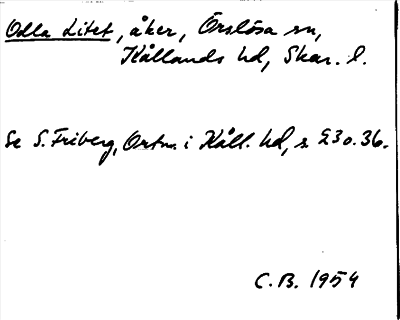 Odla Litet, åker, Örslösa sn,
Kållands hd, Skar. l.
Se S. Friberg, Ortn. i Kåll. hd, s. 230.36.
C.B. 1954